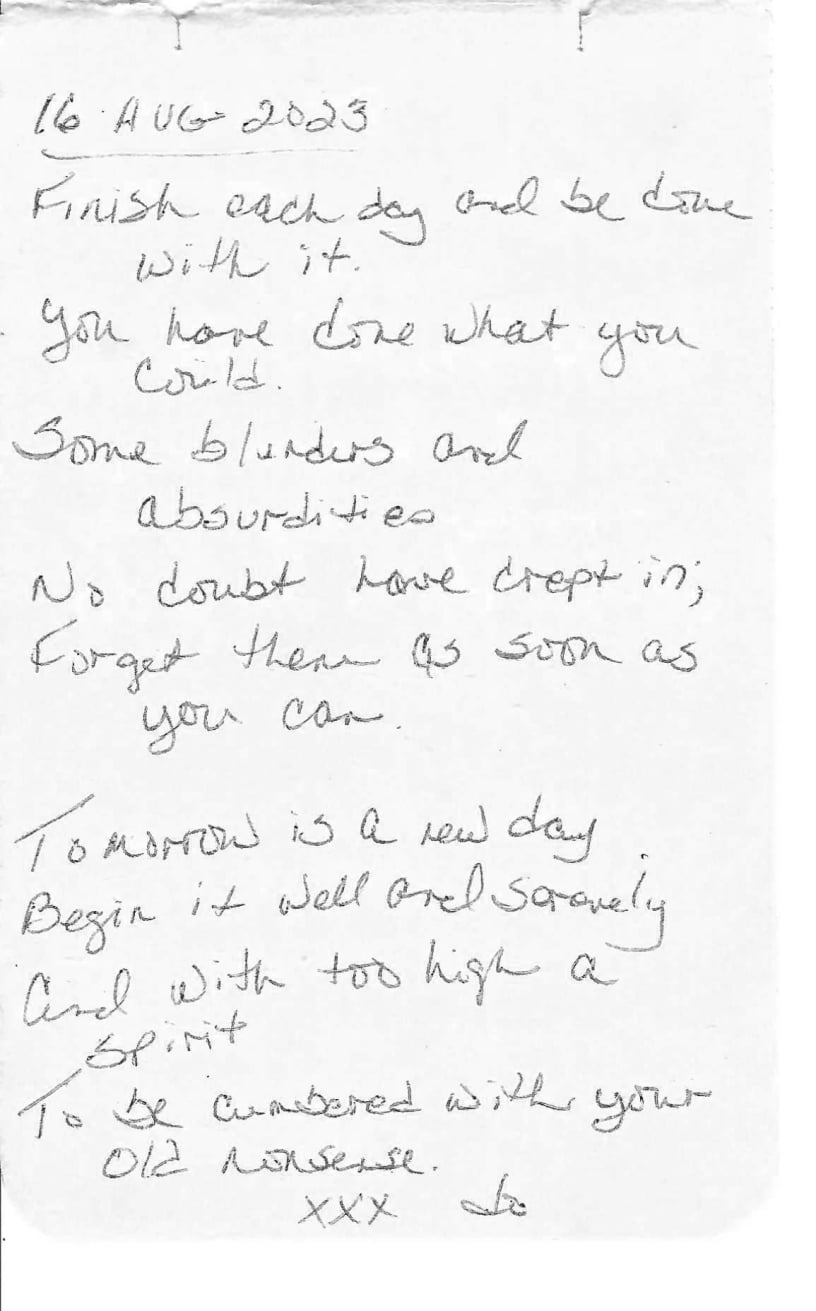 16 AUG 2023
Finish each day and be done
with it.
You have done what you
could.
Some blunders and
absurdities
No doubt have crept in;
Forget them as soon as
you can.
Tomorrow is a new day.
Begin it well and serenely
And with too high a
spirit
To be cumbered with your
old nonsense.
XXX